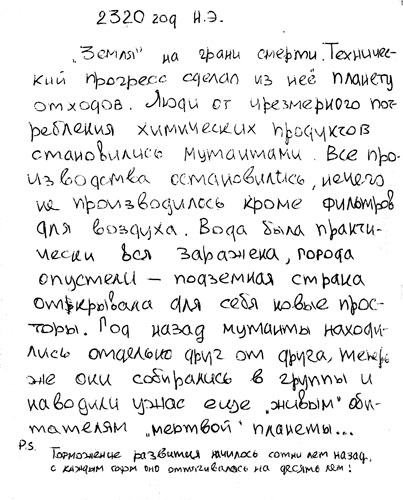 2320 год н.э.
„Земля" на грани смерти. Техничес-
кий прогресс сделал из неё планету
отходов. Люди от чрезмерного пот-
ребления химических продуктов
становились мутантами. Все про-
изводства остановились, нечего
не производилось кроме фильтров
для воздуха. Вода была практи-
чески вся заражена, города
опустели — подземная страна
открывала для себя новые прос-
торы. Год назад мутанты находи-
лись отдельно друг от друга, теперь
же они собирались в группы и
наводили ужас еще „живым" оби-
тателям „мертвой" планеты...
P.S. Торможение развития началось сотни лет назад,
с каждым годом оно оттягивалось на десять лет!